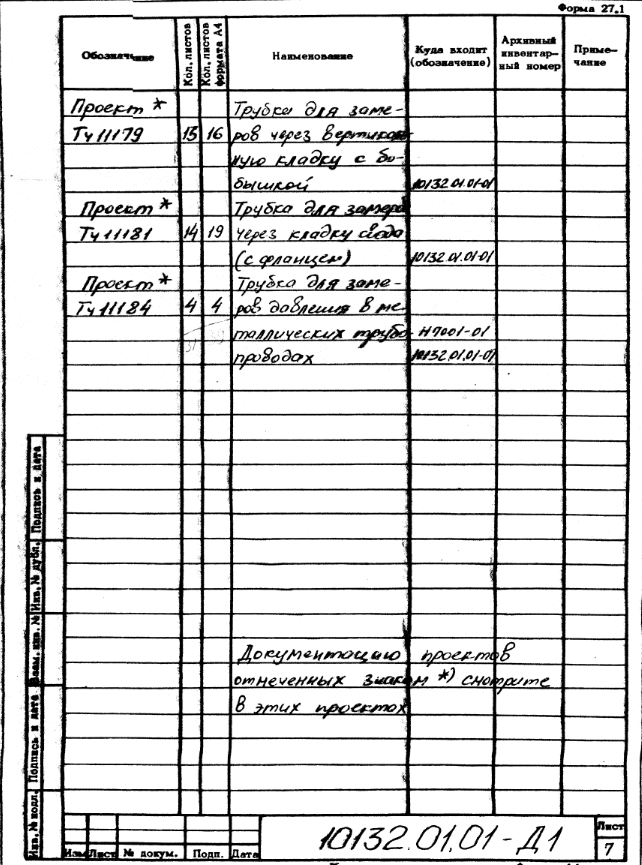 Форма 27.1
Обозначение Кол. листов Кол. листов формата А4 Наименование Куда входит (обозначение) Архивный инвентар- ный номер Приме- чание
Проект * Трубка для заме-
Тч 11179 13 16 ров через вертикаль-
ную кладку с бо-
бышкой 10132.01.01-01
Проект * Трубка для замера
Тч 11181 14 19 через кладку свода
(с фланцем) 10132.01.01-01
Проект * Трубка для заме-
Тч 11184 4 4 ров давления в ме-
таллических трубо- Н7001-01
проводах 10132.01.01-01
Документацию проектов
отмеченных знаком *) смотрите
в этих проектах
Инв. № подл. Подпись и дата Взам. инв. № Инв. № дубл. Подпись и дата
Изм Лист № докум. Подп. Дата
10132.01.01-Д1
Лист
7